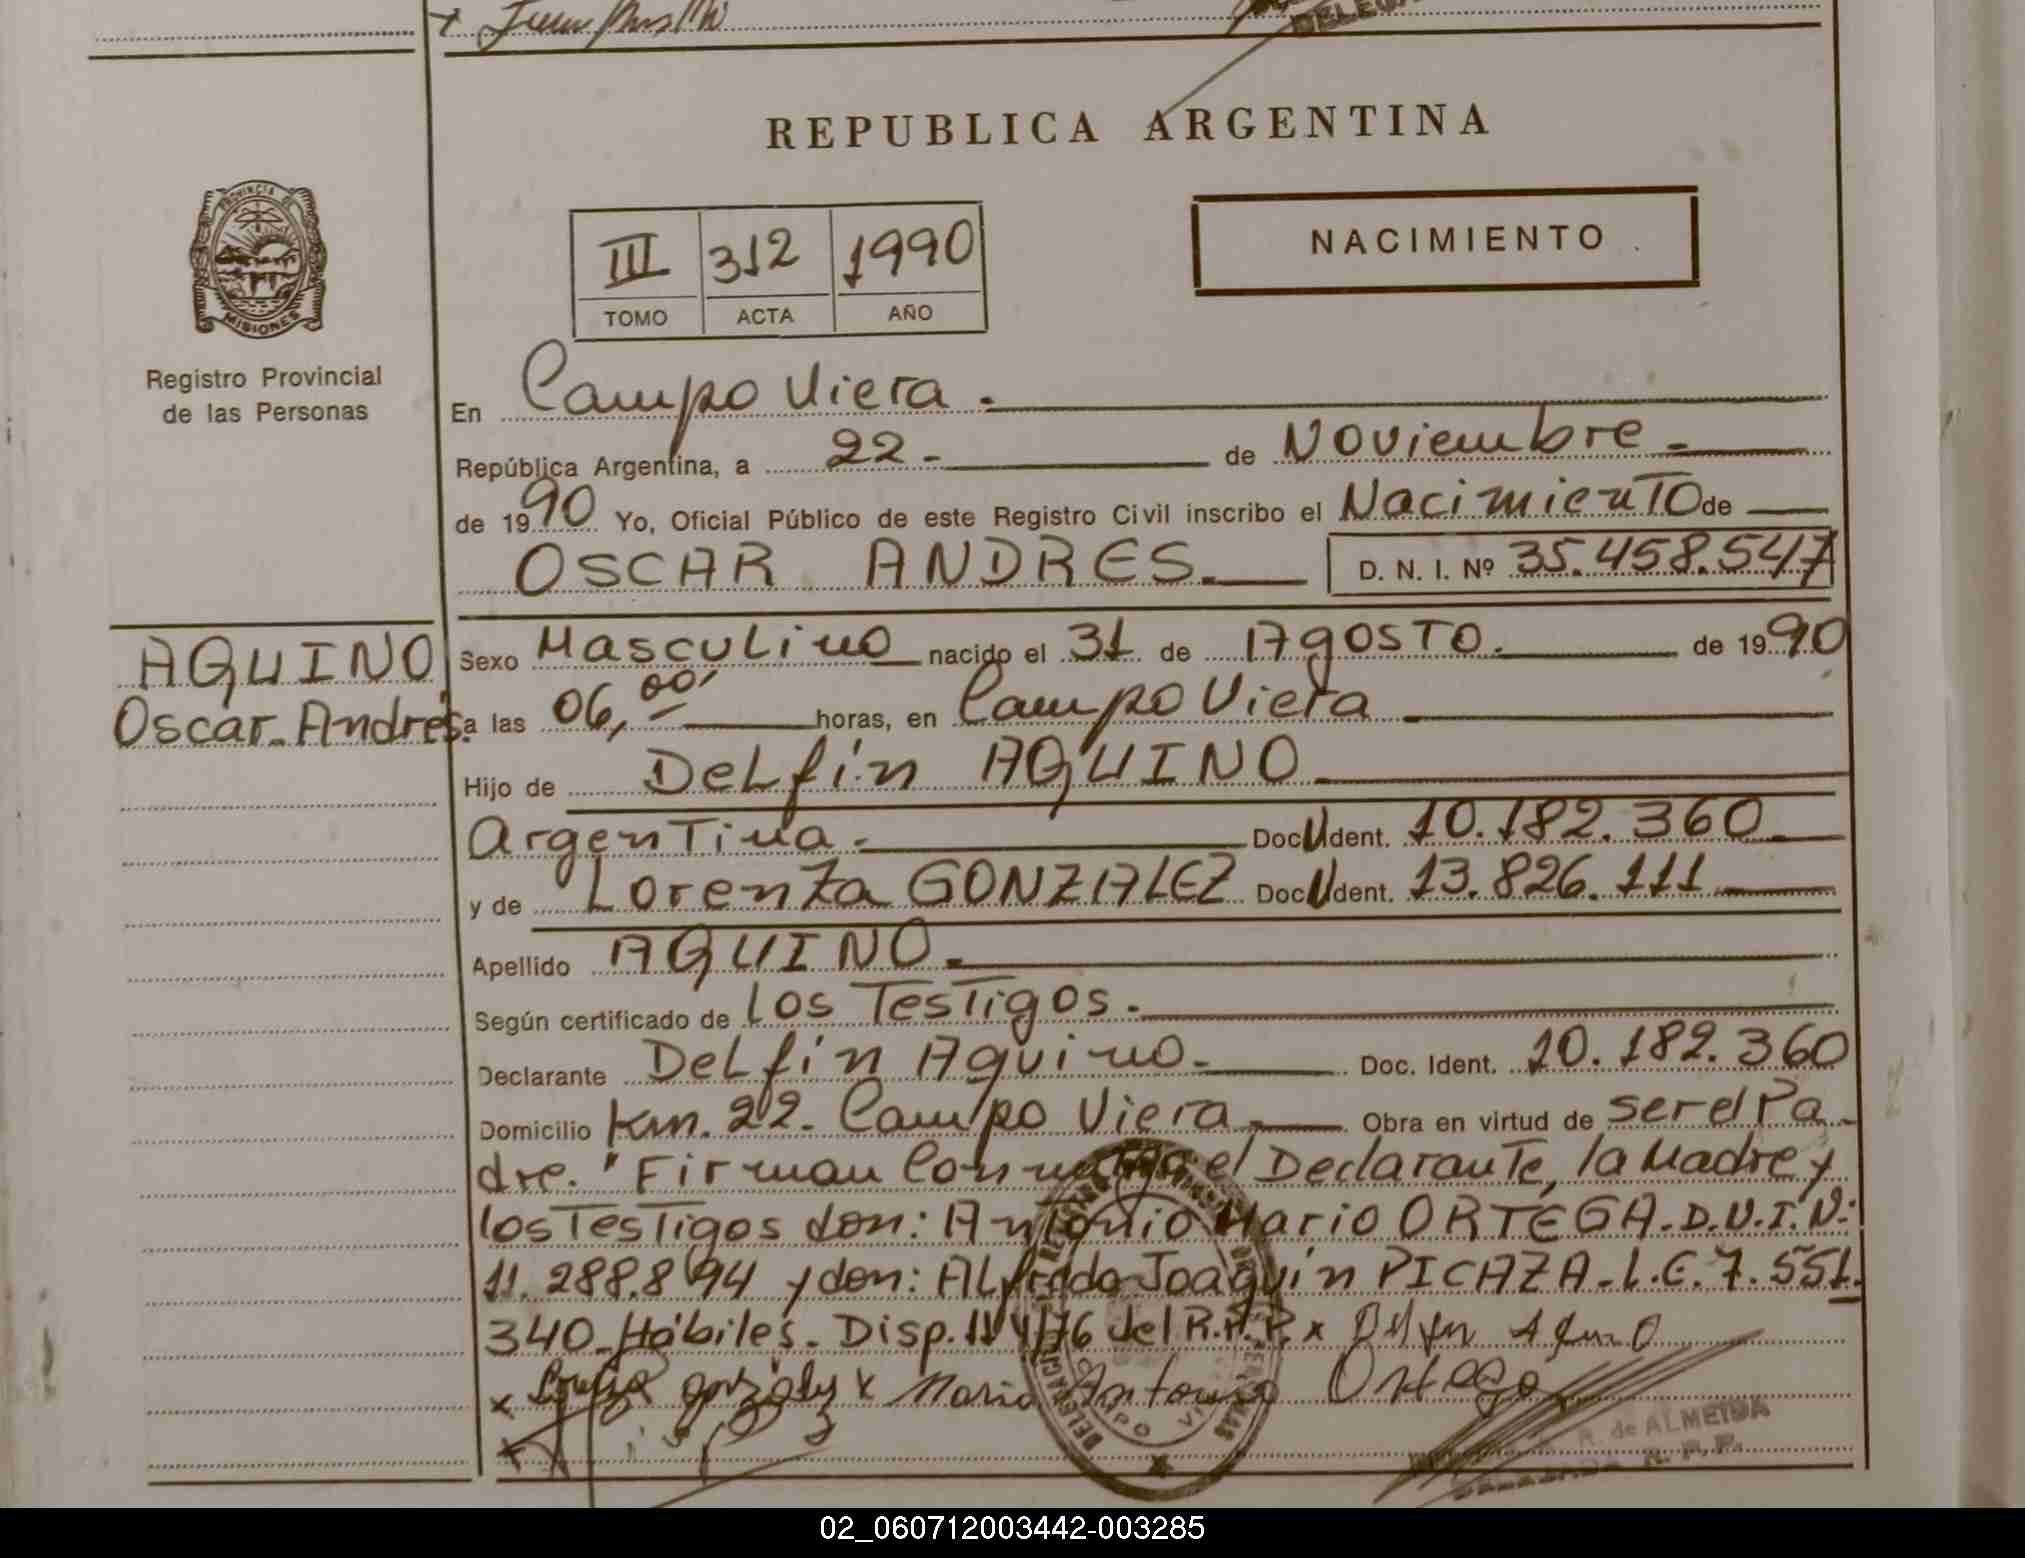 REPUBLICA ARGENTINA
PROVINCIA DE
MISIONES
Registro Provincial
de las Personas
III 312 1990
TOMO ACTA AÑO
NACIMIENTO
En Campo Viera.
República Argentina, a 22- de Noviembre-
de 1990 Yo, Oficial Público de este Registro Civil inscribo el Nacimiento de
OSCAR ANDRES. D. N. I. Nº 35.458.547
AQUINO
Oscar Andrés.
Sexo Masculino nacido el 31 de Agosto. de 1990
a las 06,00 horas, en Campo Viera
Hijo de Delfín AQUINO
Argentina. Doc. Ident. 10.182.360
y de Lorenza GONZALEZ Doc. Ident. 13.826.111
Apellido AQUINO.
Según certificado de los Testigos.
Declarante Delfín Aquino. Doc. Ident. 10.182.360
Domicilio Km. 22. Campo Viera. Obra en virtud de ser el Pa-
dre. "Firman Conmigo el Declarante, la Madre y
los Testigos don: Antonio Mario ORTEGA. D.N.I.N:
11.288.894 y don: Alfredo Joaquín PICAZA. L.E. 7.551.
340. Hábiles. Disp. 114/76 del R.P.P. x Delfin Aquino
x gonzalez x Mario Antonio Ortega
R. de ALMEIDA
R. P. P.
02_060712003442-003285